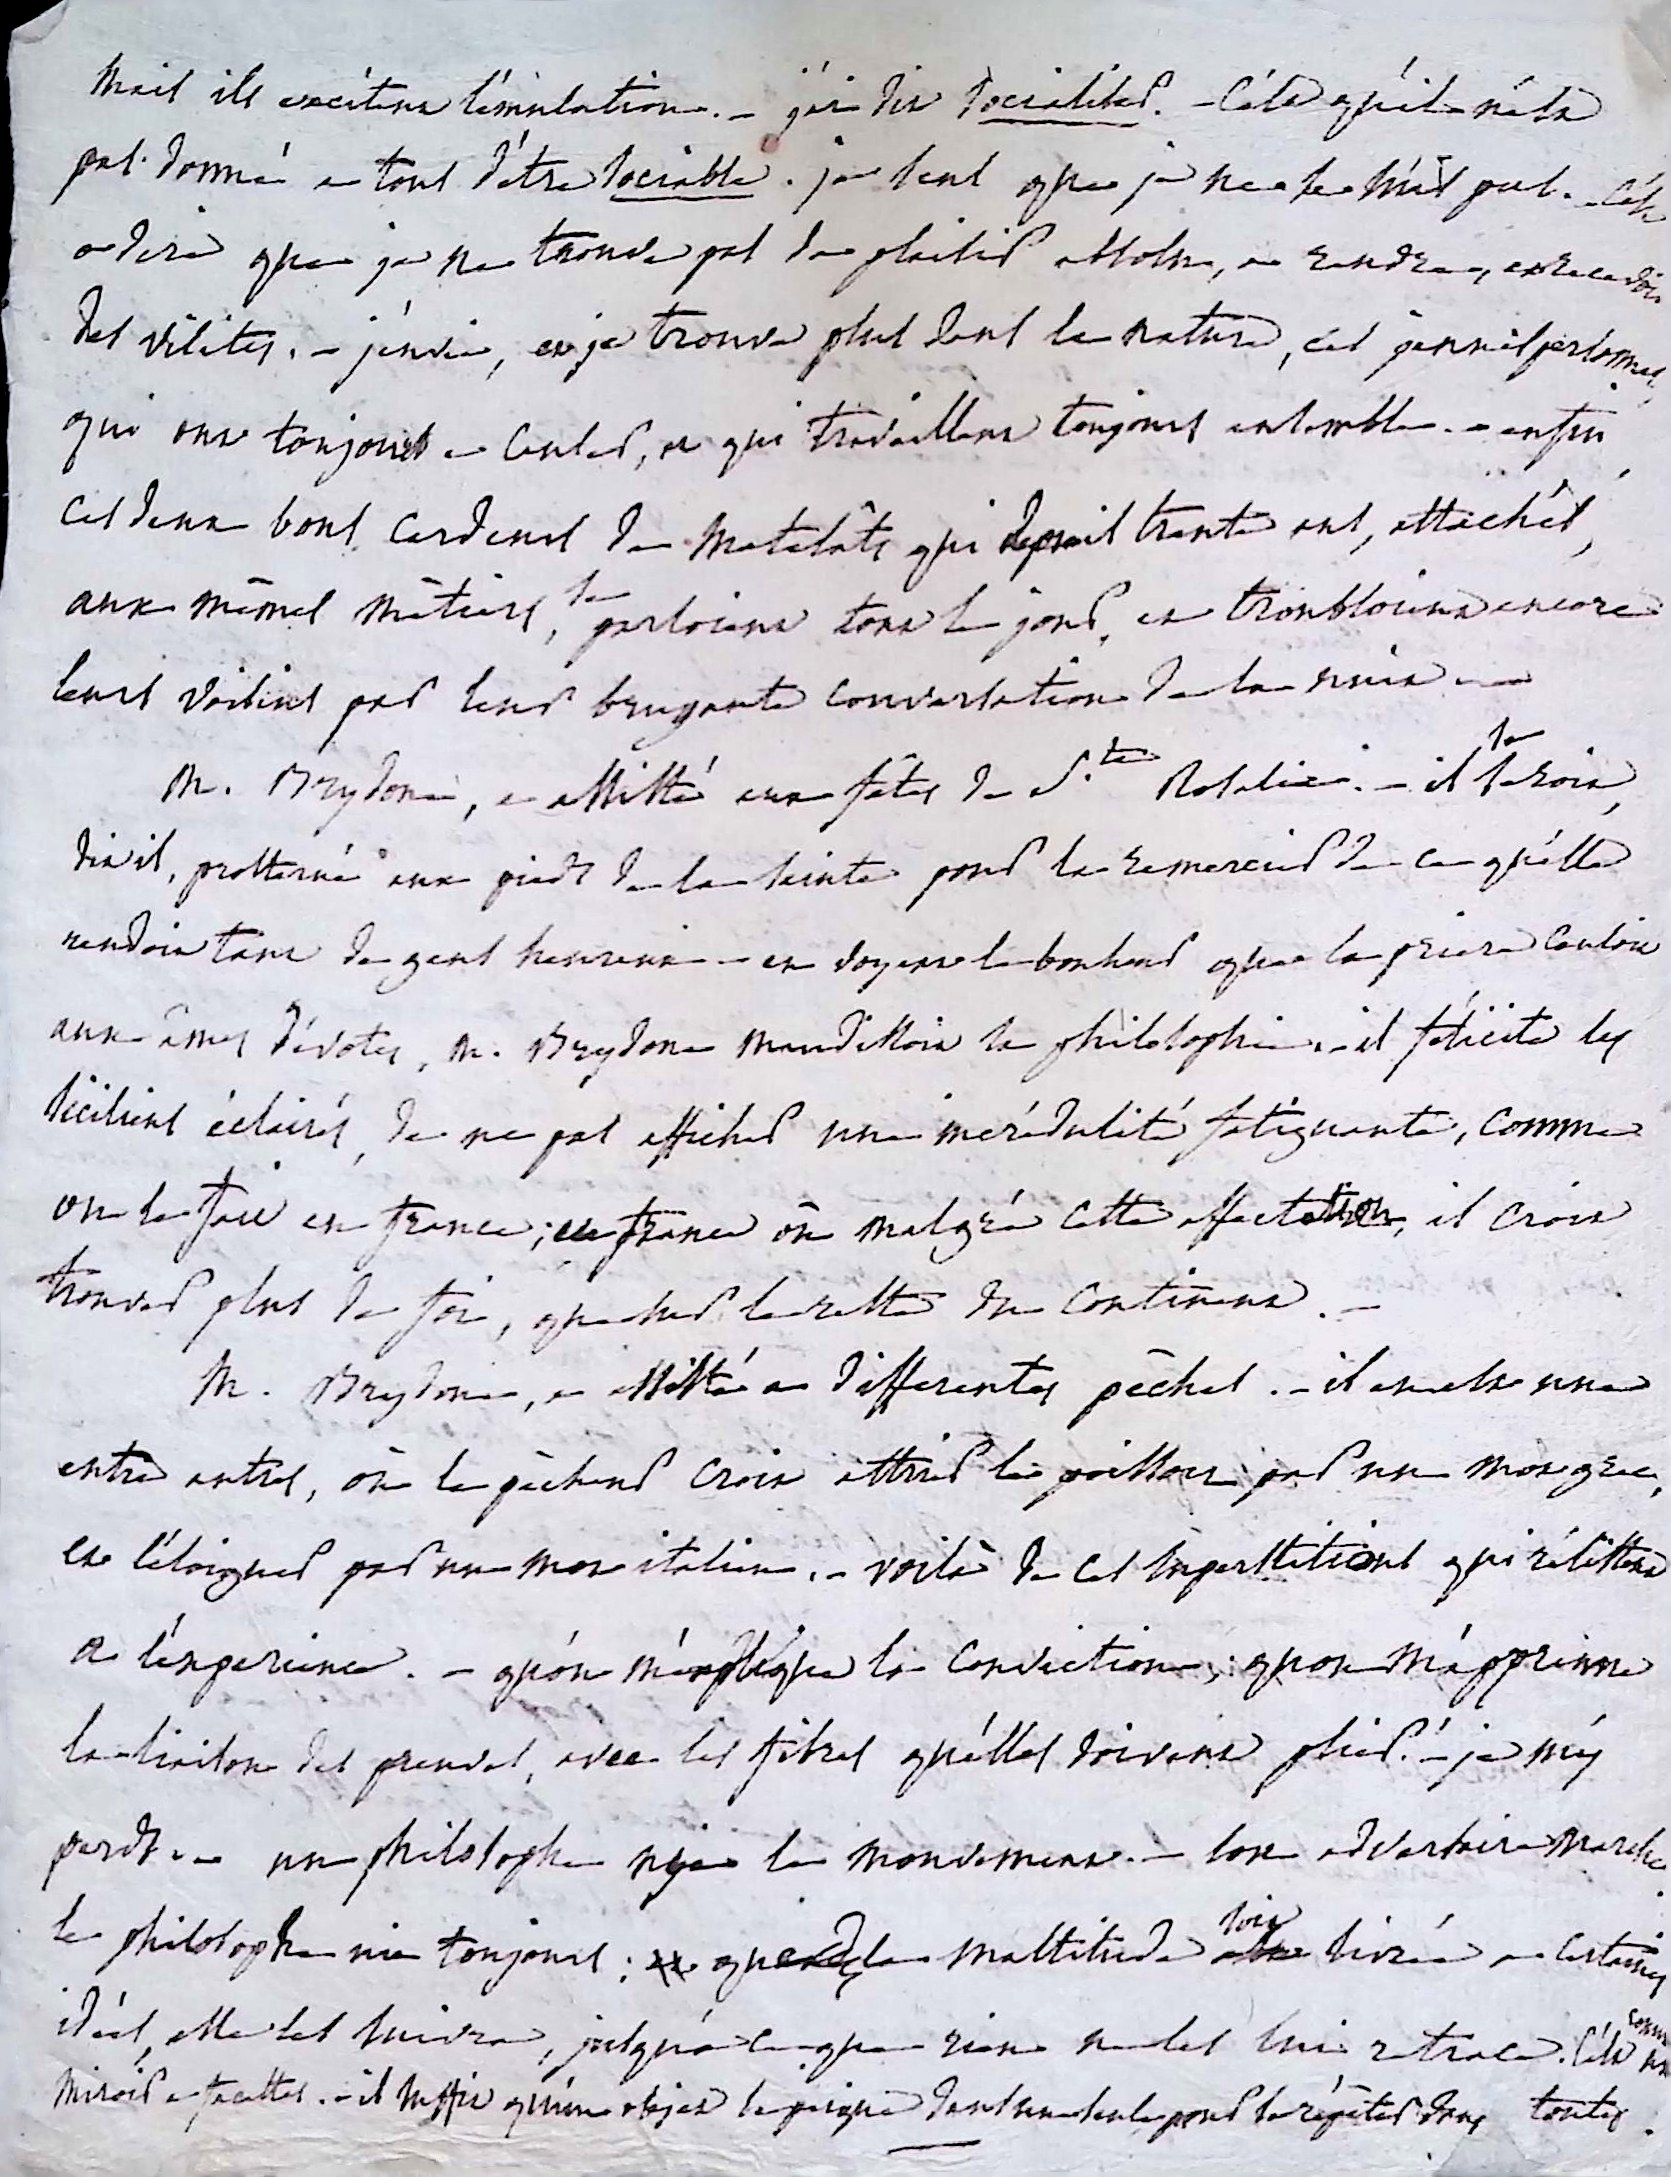 mais ils excitent l'émulation. – j'ai dit sociables. – C'est qu'il n'est
pas donné a tous d'être sociable. je sens que je ne le suis pas. – C'est
a dire que je ne trouve pas de plaisir absolu, a rendre, et recevoir
des visites. – j'envie, et je trouve plus dans la nature, ces personnes,
qui ont toujours a causer, et qui travaillent toujours ensemble. – enfin
ces deux bons cardeurs de matelats qui depuis trente ans, attachés,
aux mêmes métiers, se parloient tout le jour, et troubloient encore
leurs voisins par leur bruyante conversation de la nuit. –
M. Brydone, a assisté aux fêtes de Ste Rosalie. – il se seroit,
dit il, prosterné aux pieds de la sainte pour la remercier de ce qu'elle
rendoit tant de gens heureux. – en voyant le bonheur que la priere causoit
aux âmes dévotes, M. Brydone maudissoit la philosophie. – il félicite les
siciliens éclairés, de ne pas afficher une incrédulité fatiguante, comme
on le fait en france; en france où malgré cette affectation, il croit
trouver plus de foi, que sur le reste du continent. –
M. Brydone, a assisté a differentes pêches. – il en est une
entre autres, où le pêcheur croit attirer le poisson par un mot grec,
et l'éloigner par un mot italien. – voilà de ces superstitions qui résistent
a l'experience. – qu'on m'explique la conviction; qu'on m'apprenne
la liaison des preuves, avec les fibres qu'elles doivent plier. – je m'y
perds. – un philosophe nie le mouvement. – son adversaire marche
le philosophe nie toujours; que la multitude soit livrée a certaines
idées, elle les suivra, jusqu'a ce que rien ne les lui retrace. C'est comme un
miroir a facettes. – il suffit qu'un objet se peigne dans une seule pour se répéter dans toutes.